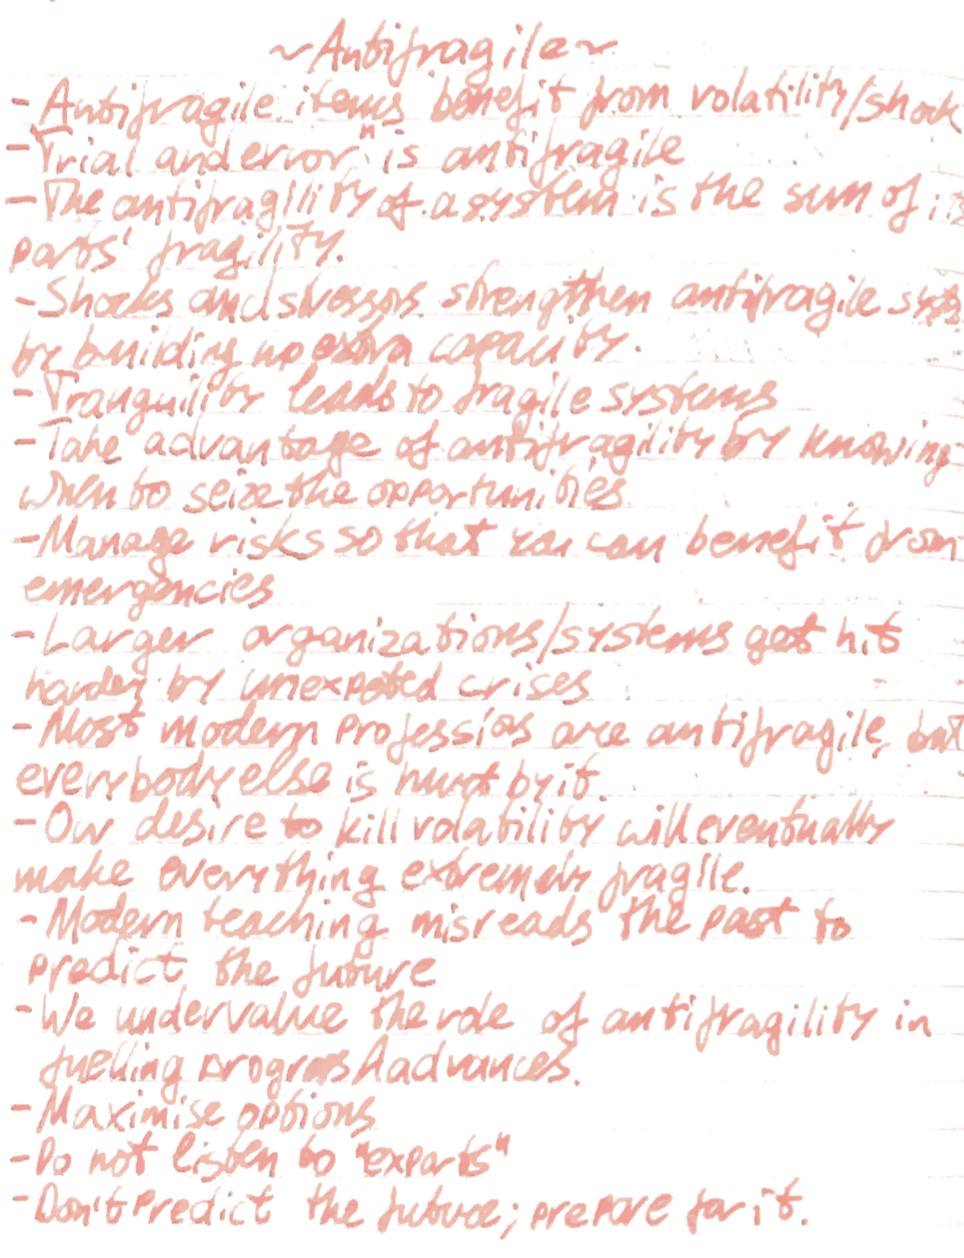 ~Antifragile~
- Antifragile items benefit from volatility/shock
- "Trial and error" is antifragile
- The antifragility of a system is the sum of its
parts' fragility.
- Shocks and stressors strengthen antifragile
by building up extra capacity.
- Tranquility leads to fragile systems
- Take advantage of antifragility by knowing
when to seize the opportunities
- Manage risks so that you can benefit from
emergencies
- Larger organizations/systems get hit
harder by unexpected crises
- Most modern professions are antifragile, but
everybody else is hurt by it.
- Our desire to kill volatility will eventually
make everything extremely fragile.
- Modern teaching misreads the past to
predict the future
- We undervalue the role of antifragility in
fuelling progress/advances.
- Maximise options
- Do not listen to "experts"
- Don't predict the future; prepare for it.